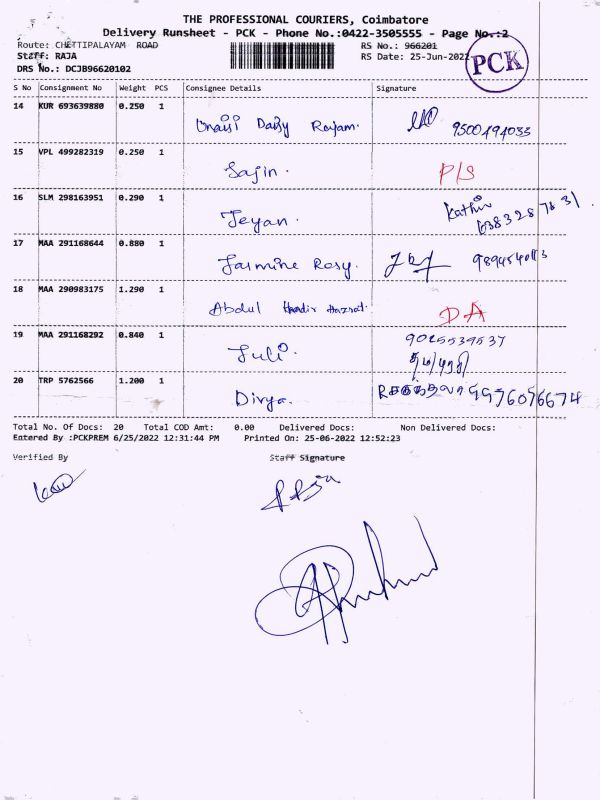 THE PROFESSIONAL COURIERS, Coimbatore
Delivery Runsheet - PCK - Phone No.:0422-3505555 - Page No.:2
Route: CHETTIPALAYAM ROAD RS No.: 966201
Staff: RAJA RS Date: 25-Jun-2022
PCK
DRS No.: DCJB96620102
S No Consignment No Weight PCS Consignee Details Signature
14 KUR 693639880 0.250 1
Daisy Rajam. 9500494033
15 VPL 499282319 0.250 1
Sajin. P/S
16 SLM 298163951 0.290 1
Jeyan. Kathir
17 MAA 291168644 0.880 1
Jasmine Rosy.
18 MAA 290983175 1.290 1
Abdul Hazrat. DA
19 MAA 291168292 0.840 1
Juli. 9025539537
20 TRP 5762566 1.200 1
Divya. 9976076674
Total No. Of Docs: 20 Total COD Amt: 0.00 Delivered Docs: Non Delivered Docs:
Entered By :PCKPREM 6/25/2022 12:31:44 PM Printed On: 25-06-2022 12:52:23
Verified By Staff Signature